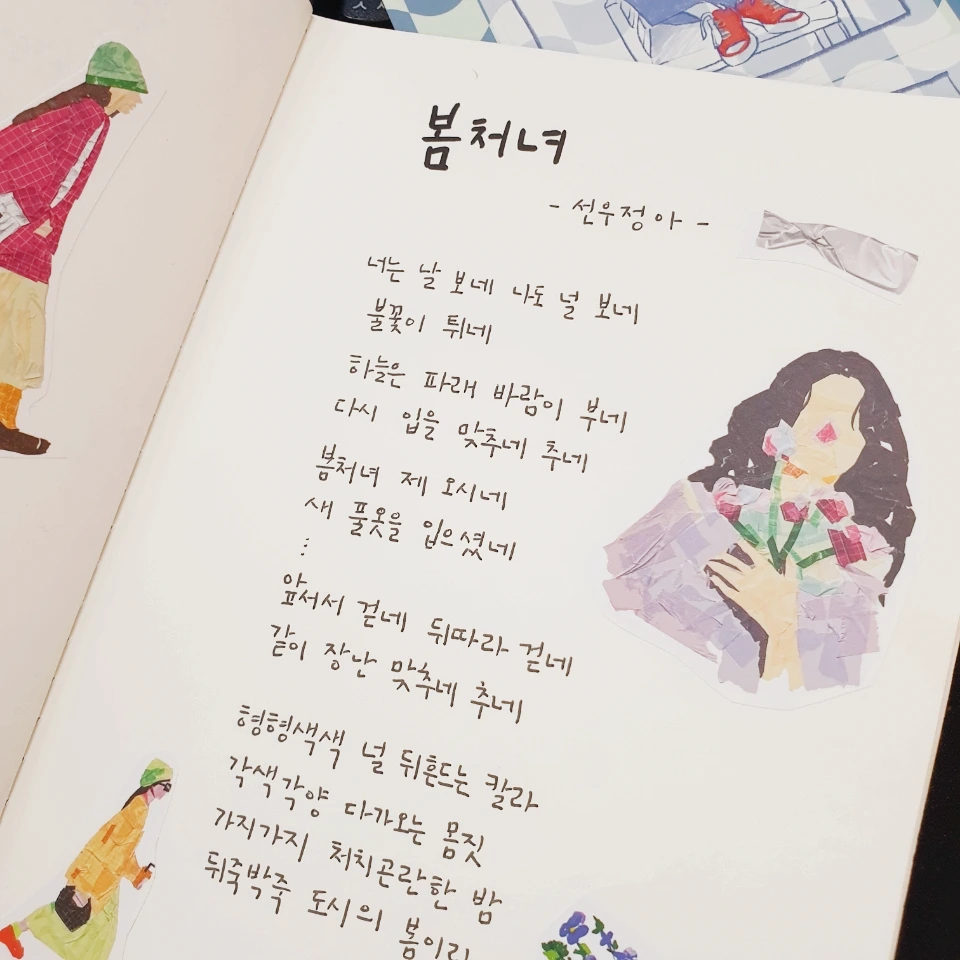 봄처녀
- 선우정아 -
너는 날 보네 나도 널 보네
불꽃이 튀네
하늘은 파래 바람이 부네
다시 입을 맞추네 추네
봄처녀 제 오시네
새 풀옷을 입으셨네
⋮
앞서서 걷네 뒤따라 걷네
같이 장난 맞추네 추네
형형색색 널 뒤흔드는 칼라
각색각양 다가오는 몸짓
가지가지 처치곤란한 밤
뒤죽박죽 도시의 봄이라